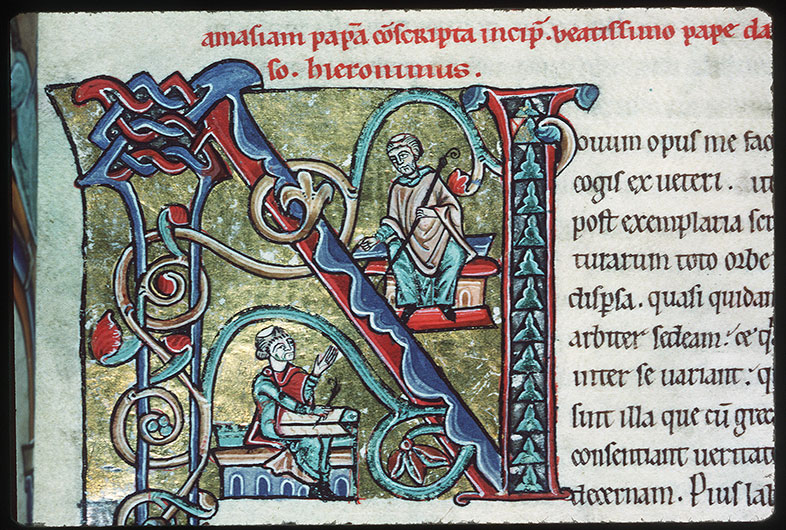 amasiam papā cōscripta incip̄. beatissimo pape da
so. hieronimus.
N
ouum opus me fac
cogis ex ueteri. ut
post exemplaria scr
turarum toto orbe
dispsa. quasi quidam
arbiter sedeam: &
inter se uariant: q
sint illa que cū grec
consentiant ueritat
decernam. Pius lab